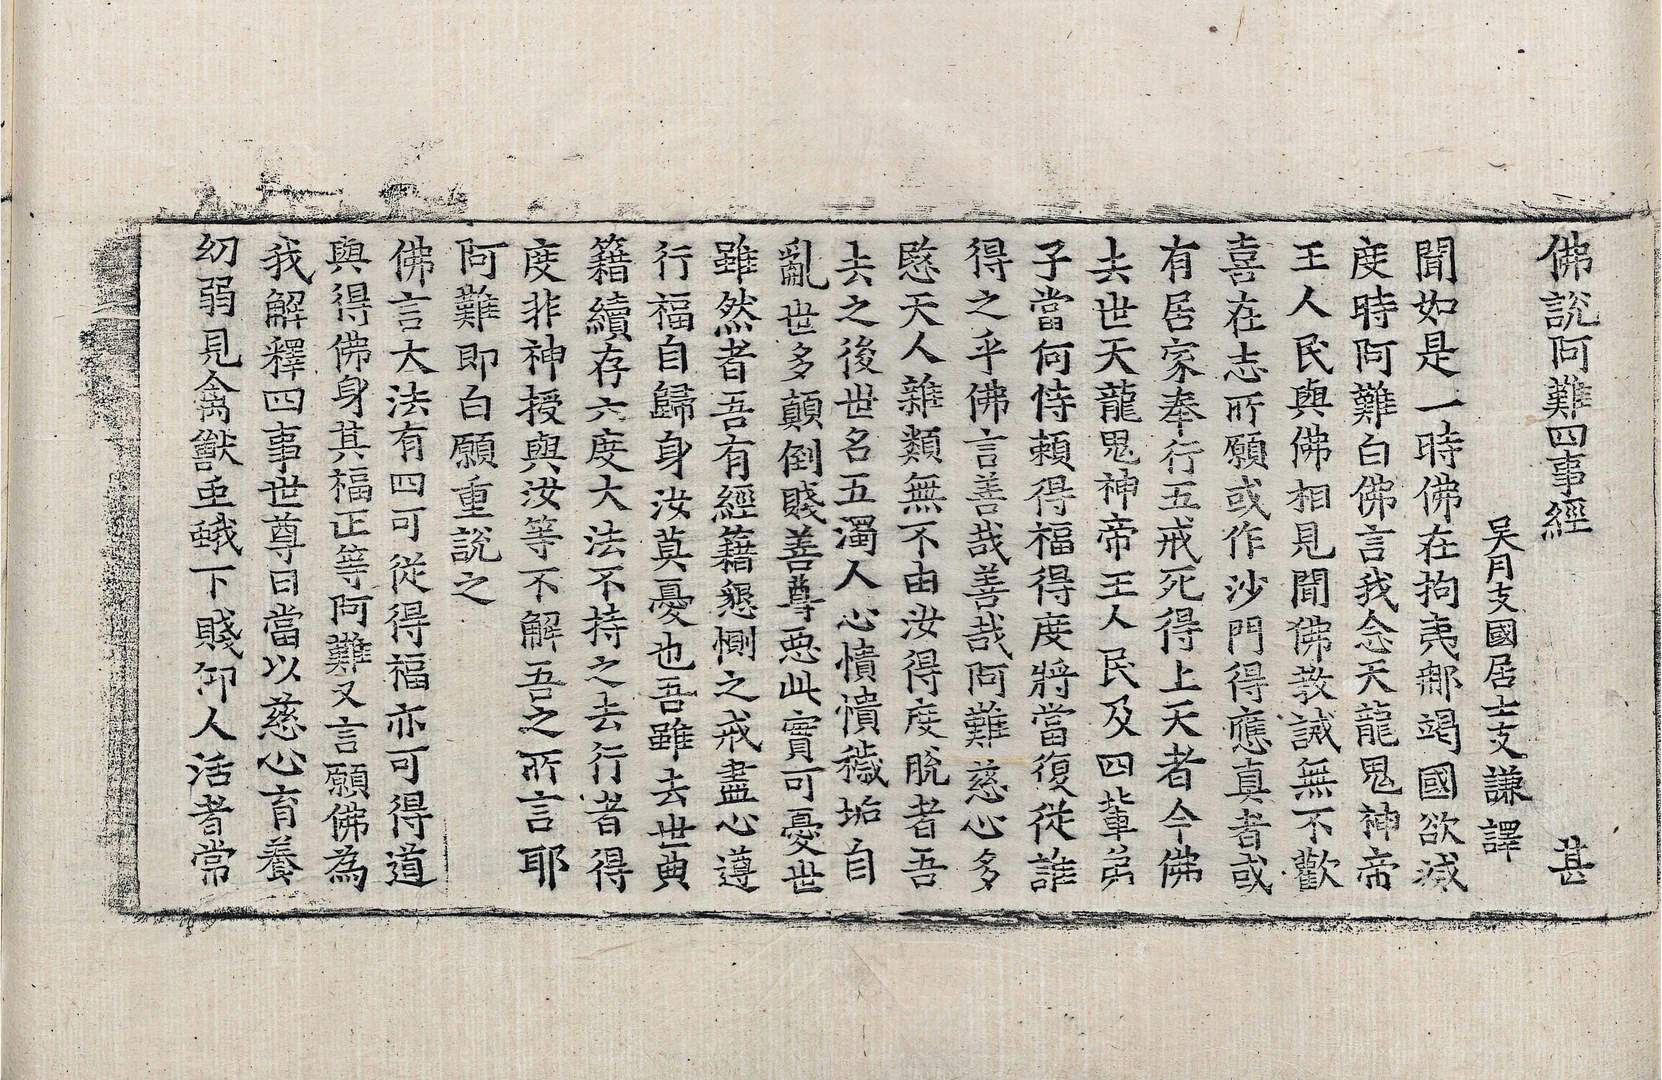 佛說阿難四事經 甚
吳月支國居士支謙譯
聞如是一時佛在拘夷郍竭國欲滅
度時阿難白佛言我念天龍鬼神帝
王人民與佛相見聞佛教誡無不歡
喜在志所願或作沙門得應真者或
有居家奉行五戒死得上天者今佛
去世天龍鬼神帝王人民及四輩弟
子當何恃賴得福得度將當復從誰
得之乎佛言善哉善哉阿難慈心多
愍天人雜類無不由汝得度脫者吾
去之後世名五濁人心憒憒穢垢自
亂世多顛倒賤善尊惡此實可憂世
雖然者吾有經籍懇惻之戒盡心遵
行福自歸身汝莫憂也吾雖去世典
籍續存六度大法不持之去行者得
度非神授與汝等不解吾之所言耶
阿難即白願重說之
佛言大法有四可從得福亦可得道
與得佛身其福正等阿難又言願佛為
我解釋四事世尊曰當以慈心育養
幼弱見禽獸虫蛾下賤仰人活者常